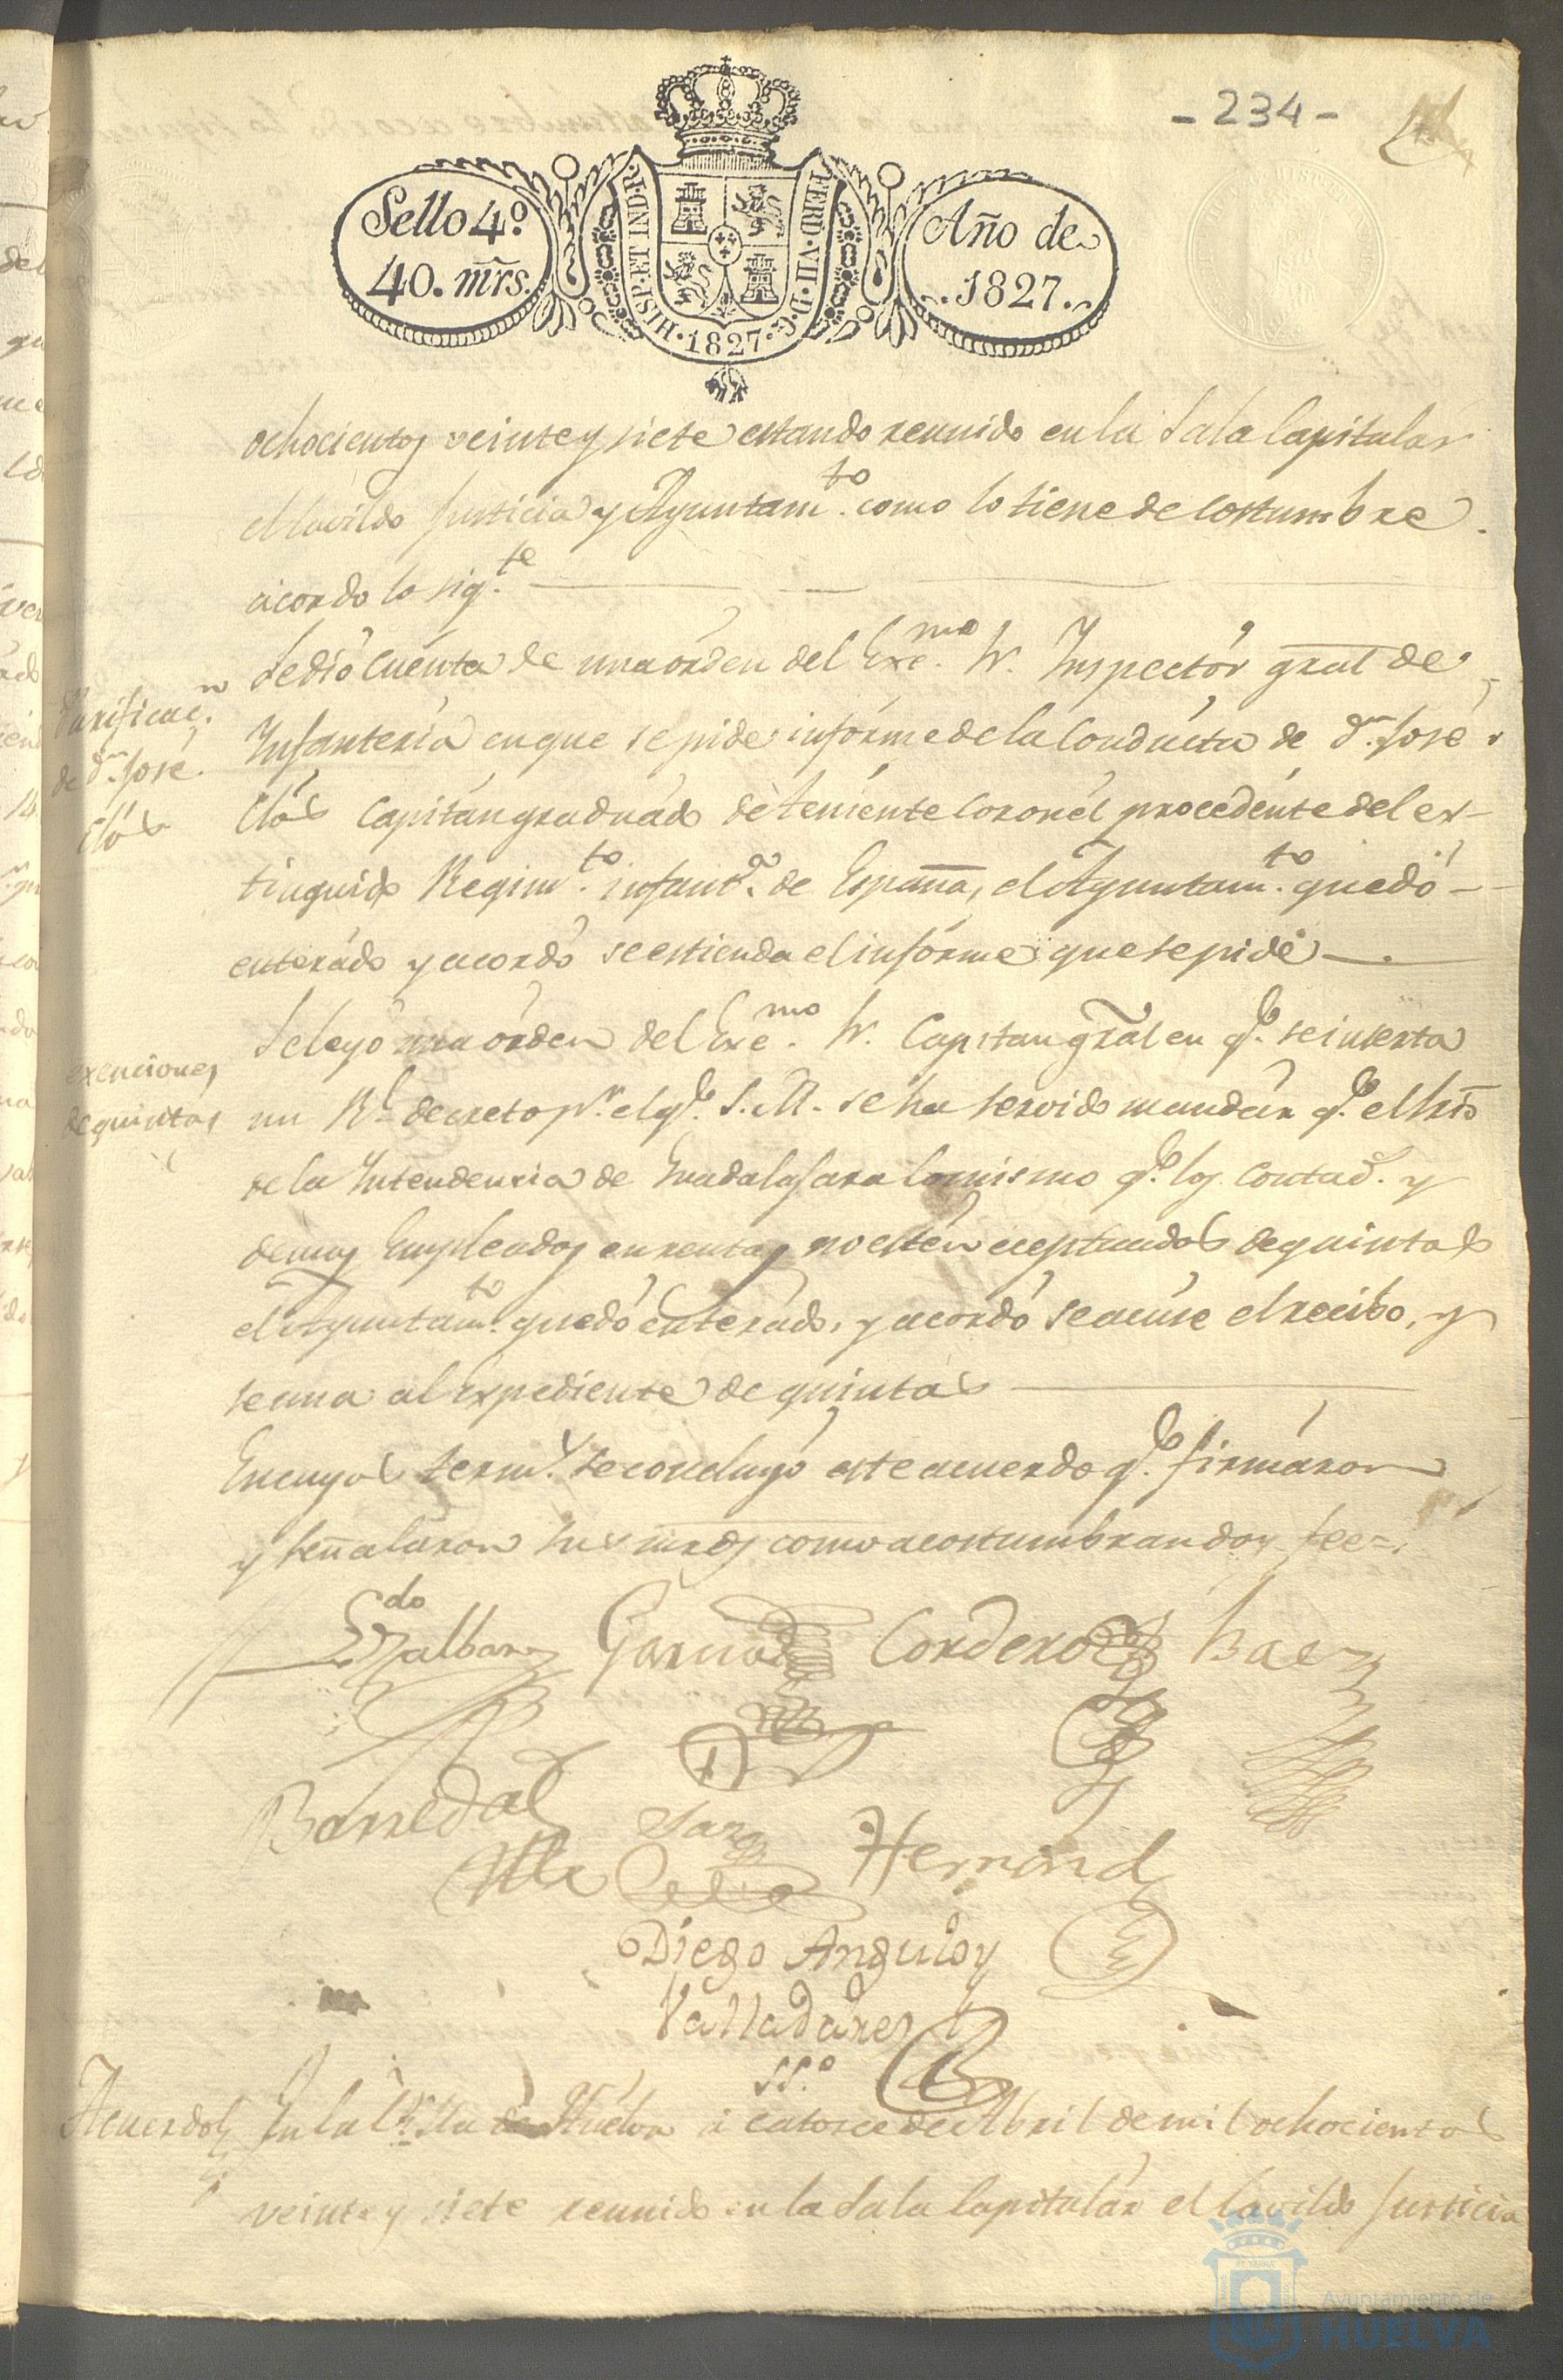 - 234 -
Sello 4º
40. mrs.
HISP. ET IND. R.
FERD. VII. D. G.
1827
Año de
1827.
ochocientos veinte y siete estando reunido en la Sala Capitular
el Cavildo Justicia y Ayuntam.to como lo tiene de costumbre
acordo lo sig.te
Purificac.n
de d.n José
Clos
Se dió cuenta de una orden del Exc.mo Sr. Inspectór gral de
Infanteria en que se pide infórme de la Conducta de d.n José
Clos Capitán graduado de teniente Coronél procedente del ex-
tinguido Regim.to infant.a de España, el Ayuntam.to quedó
enterádo y acordó se estienda el infórme que se pide
exenciones
de quintas
Se leyó una orden del Exc.mo Sr. Capitan gral en q.e se inserta
un Rl. decreto p.r el q.e S. M. se ha servido mandár q.e el Srio
de la Intendencia de Guadalajara lo mismo q.e los Contad.s y
demas Empleados en rentas no estén eceptuados de quintas
el Ayuntam.to quedó enterado, y acordó se acuse el recibo, y
se una al expediente de quintas
En cuyos term.s se concluyó este acuerdo q.e firmáron
y señalaron sus mrds como acostumbran doy fee=
Ldo
Garrido
Cordero
Baez
Barredal
Hernand
Diego Angulo y
Valladares
SS.º
Acuerdo
En la Villa de Huelva à catorce de Abril de mil ochocientos
veinte y siete reunido en la Sala Capitulár el Cavildo Justicia
Ayuntamiento de
HUELVA